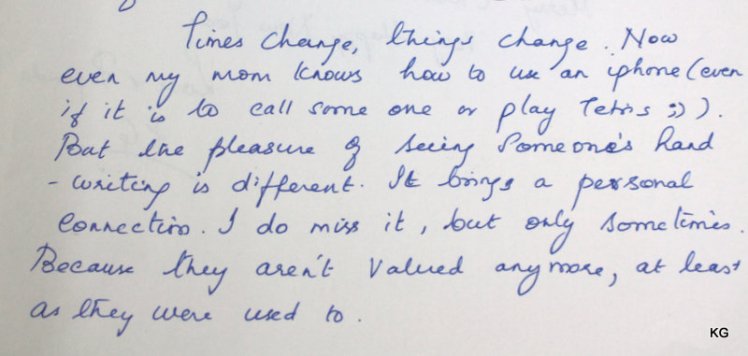 Times change, things change. Now
even my mom knows how to use an iphone (even
if it is to call some one or play Tetris ;)).
But the pleasure of seeing Someone's hand
- writing is different. It brings a personal
connection. I do miss it, but only sometimes.
Because they aren't valued anymore, at least
as they were used to.
KG